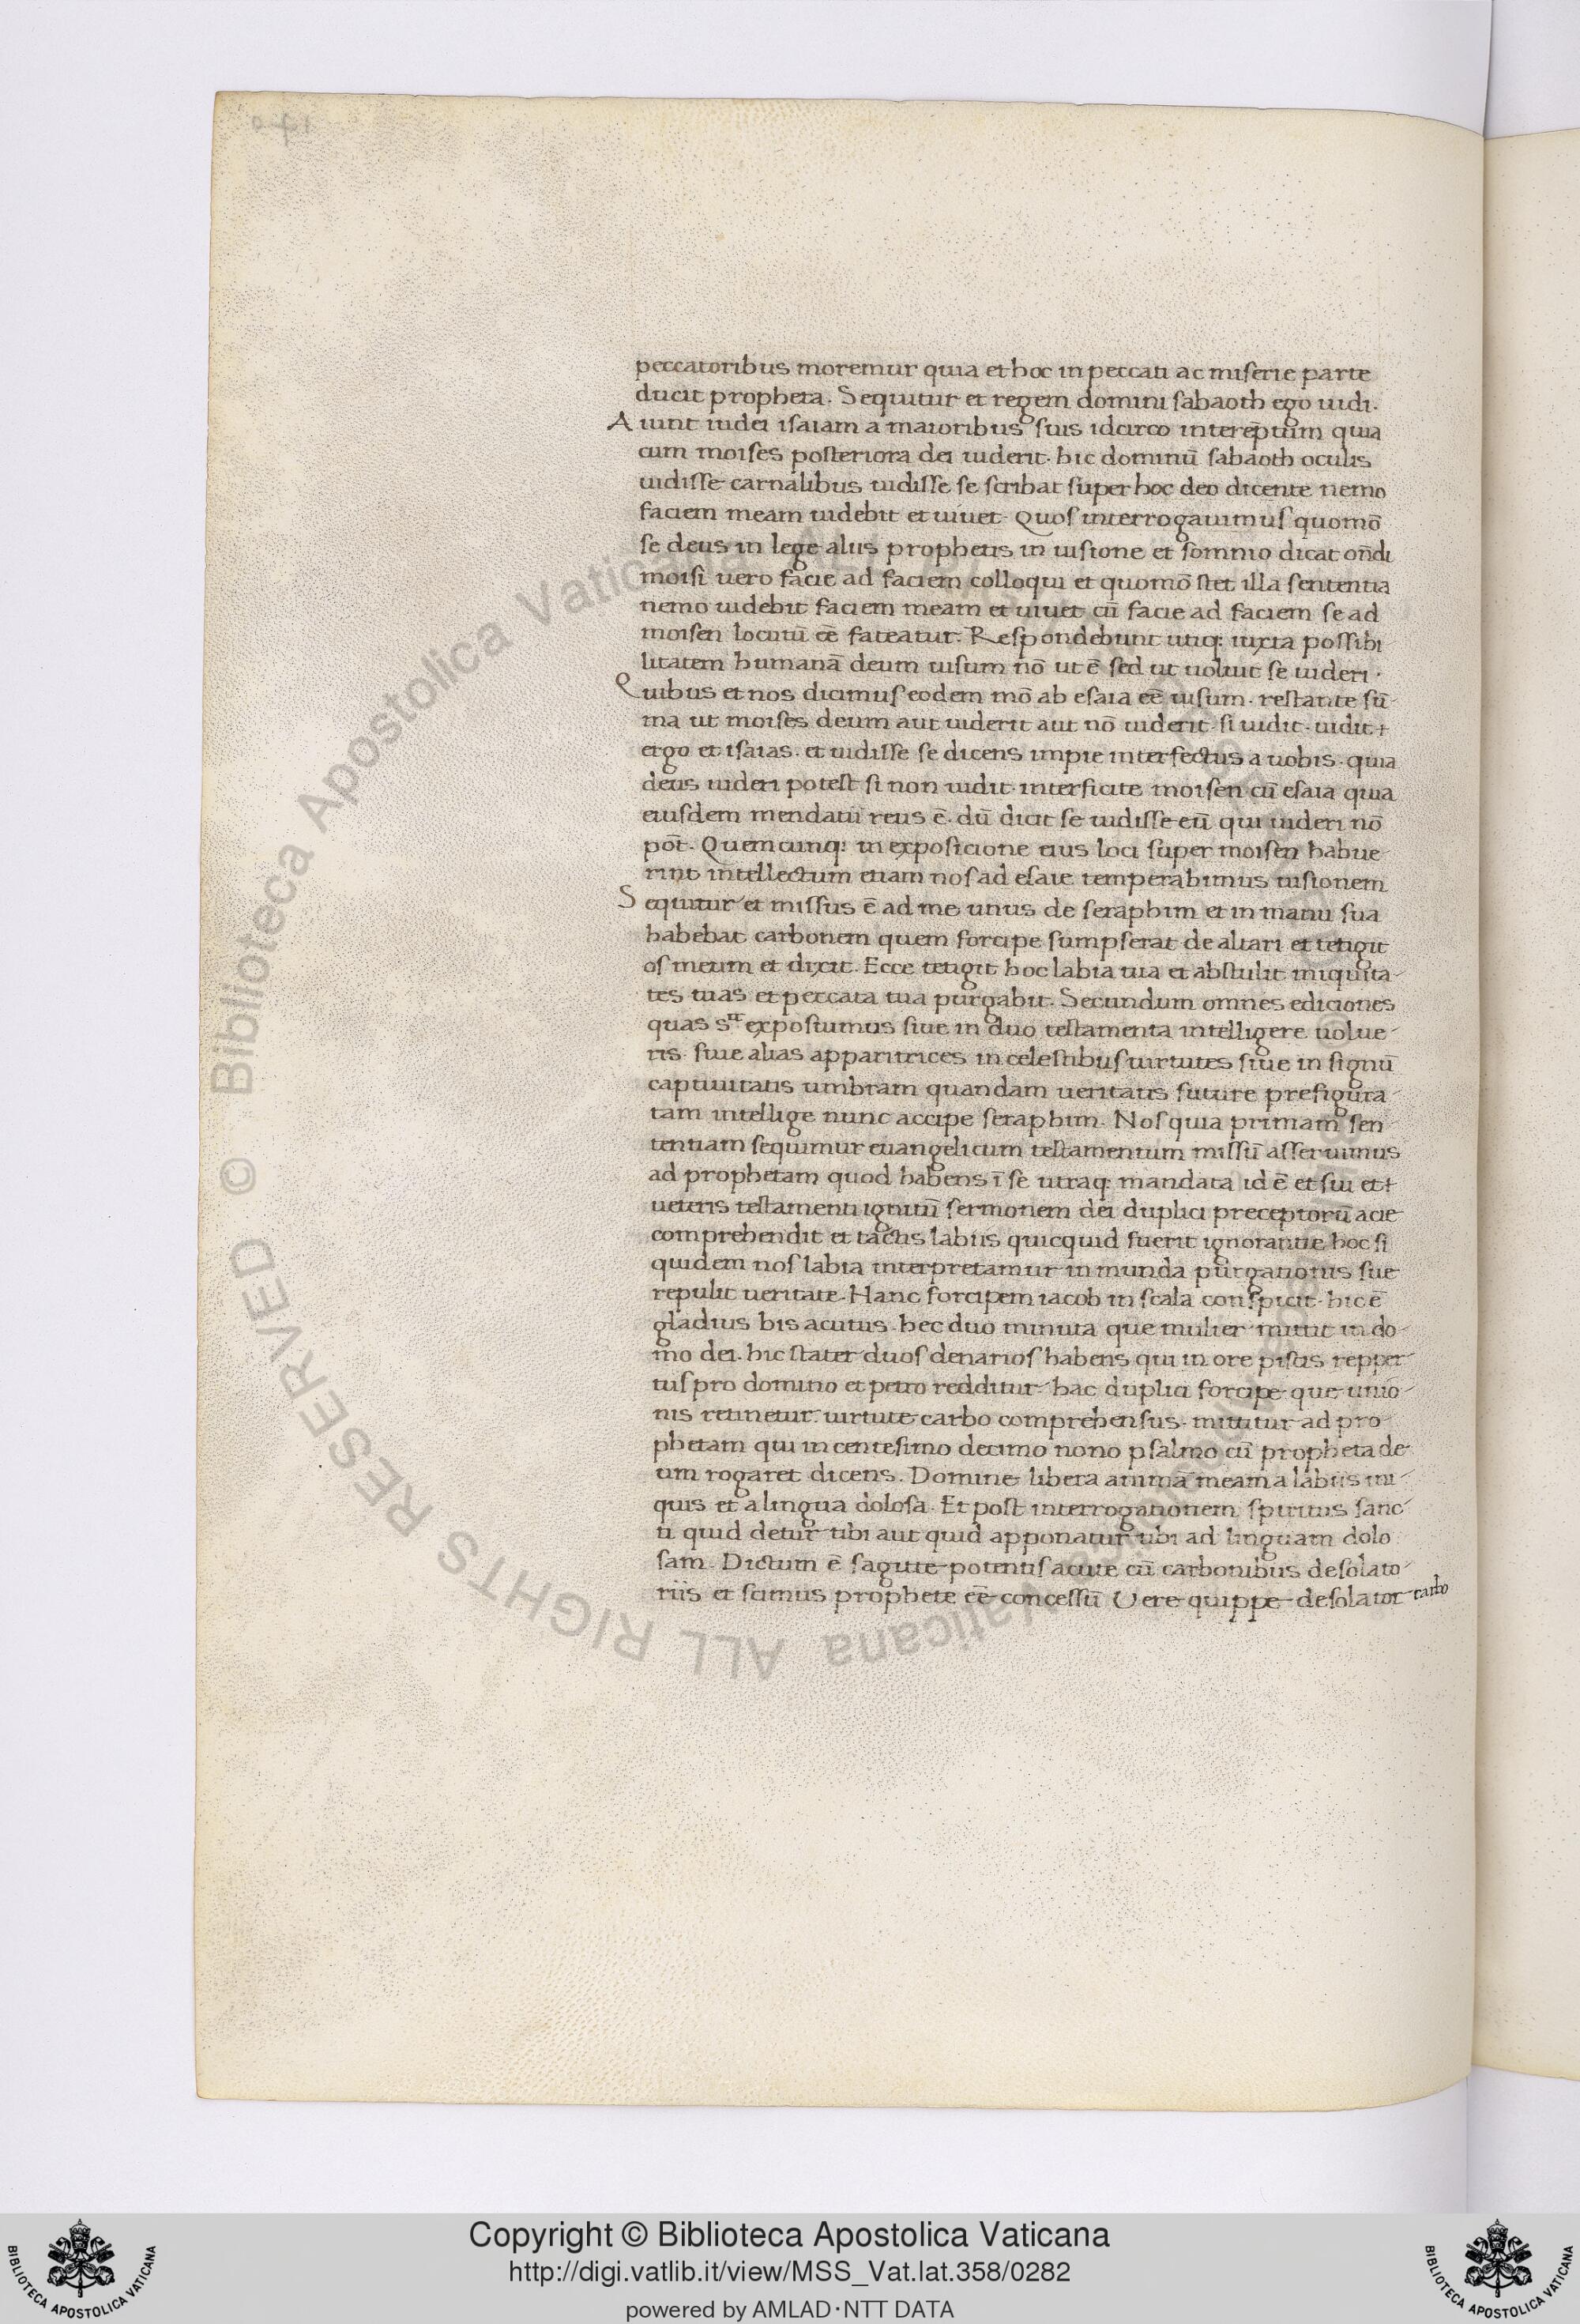 peccatoribus moremur quia et hoc in peccati ac miserie parte
ducit propheta. Sequitur et regem domini sabaoth ego uidi.
Aiunt iudei isaiam a maioribus suis idcirco interēptum quia
cum moises posteriora dei uiderit. hic dominū sabaoth oculis
uidisse carnalibus uidisse se scribat super hoc deo dicente nemo
faciem meam uidebit et uiuet. Quos interrogauimus quomō
se deus in lege aliis prophetis in uisione et somnio dicat on̄di
moisi uero facie ad faciem colloqui et quomō stet illa sententia
nemo uidebit faciem meam et uiuet cū facie ad faciem se ad
moisen locutū eē fateatur. Respondebunt utiq: iuxta possibi
litatem humanā deum uisum nō ut ē sed ut uoluit se uideri.
Quibus et nos dicimus eodem mō ab esaia eē uisum. restante sū
ma ut moises deum aut uiderit aut nō uiderit. si uidit. uidit
ergo et isaias. et uidisse se dicens impie interfectus a uobis. quia
deus uideri potest si non uidit. interficite moisen cū esaia quia
eiusdem mendatii reus ē. dū dicit se uidisse eū qui uideri nō
pōt. Quemcunq: in exposicione eius loci super moisen habue
rint intellectum etiam nos ad esaie temperabimus uisionem
Sequitur et missus ē ad me unus de seraphim et in manu sua
habebat carbonem quem forcipe sumpserat de altari et tetigit
os meum et dixit. Ecce tetigit hoc labia tua et abstulit iniquita
tes tuas et peccata tua purgabit. Secundum omnes ediciones
quas sʳᵃ exposiumus siue in duo testamenta intelligere uolue
ris. siue alias apparitrices in celestibus uirtutes siue in signū
captiuitatis umbram quandam ueritatis future prefigura
tam intellige nunc accipe seraphim. Nos quia primam sen
tentiam sequimur euangelicum testamentum missū asseruimus
ad prophetam quod habens ī se utraq: mandata id ē et sui et
ueteris testamenti ignitū sermonem dei duplici preceptorū acie
comprehendit et tactis labiis quicquid fuerit ignorantie hoc si
quidem nos labia interpretamur inmunda purgationis sue
repulit ueritate. Hanc forcipem iacob in scala conspicit. hic ē
gladius bis acutus. hec duo minuta que mulier mittit in do
mo dei. hic stater duos denarios habens qui in ore piscis repper
tus pro domino et petro redditur hac duplici forcipe que unio
nis retinetur. uirtute carbo comprehensus. mittitur ad pro
phetam qui in centesimo decimo nono psalmo cū propheta de
um rogaret dicens. Domine libera animā meam a labiis ini
quis et a lingua dolosa. Et post interrogationem spiritus sanc
ti quid detur tibi aut quid apponatur tibi ad linguam dolo
sam. Dictum ē sagitte potentis acute cū carbonibus desolato
riis et scimus prophete eē concessū Uere quippe desolator carbo
Copyright © Biblioteca Apostolica Vaticana
http://digi.vatlib.it/view/MSS_Vat.lat.358/0282
powered by AMLAD·NTT DATA